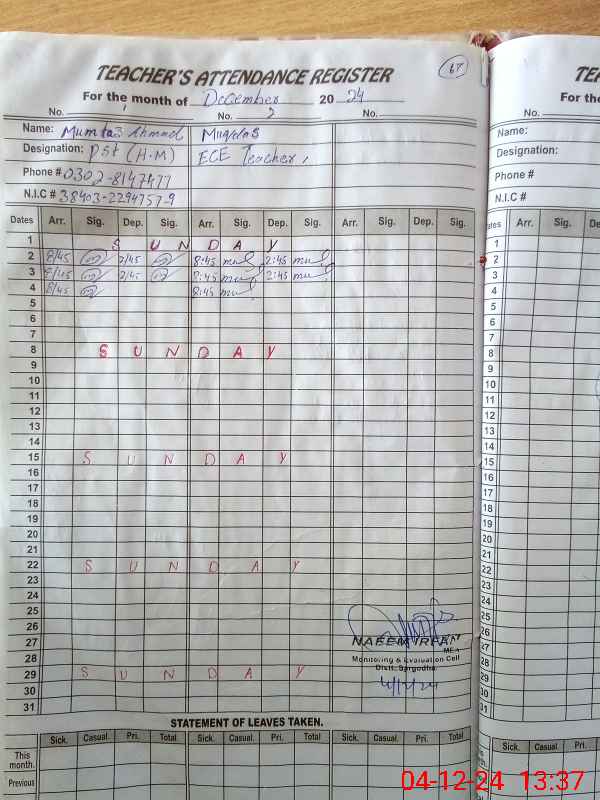 67
TEACHER'S ATTENDANCE REGISTER
For the month of December 20 24
No. 1 No. 2 No.
Name: Mumtaz Ahmad
Designation: PST (H-M) ECE Teacher,
Phone # 0302-8147477
N.I.C # 38403-2294757-9
Dates Arr. Sig. Dep. Sig. Arr. Sig. Dep. Sig. Arr. Sig. Dep. Sig.
1 S U N D A Y
2 8/45 2/45 8:45 2:45
3 8/45 2/45 8:45 2:45
4 8/45 8:45
5
6
7
8 S U N D A Y
9
10
11
12
13
14
15 S U N D A Y
16
17
18
19
20
21
22 S U N D A Y
23
24
25
26
27
28
29 S U N D A Y
30
31
NAEEM IRFAN
MEA
Monitoring & Evaluation Cell
Distt. Sargodha
4/12/24
STATEMENT OF LEAVES TAKEN.
Sick. Casual. Pri. Total Sick. Casual. Pri. Total Sick. Casual. Pri. Total
This month.
Previous
TE
For the
No.
Name:
Designation:
Phone #
N.I.C #
Arr. Sig.
1
2
3
4
5
6
7
8
9
10
11
12
13
14
15
16
17
18
19
20
21
22
23
24
25
26
27
28
29
30
31
Sick. Casual.
04-12-24 13:37